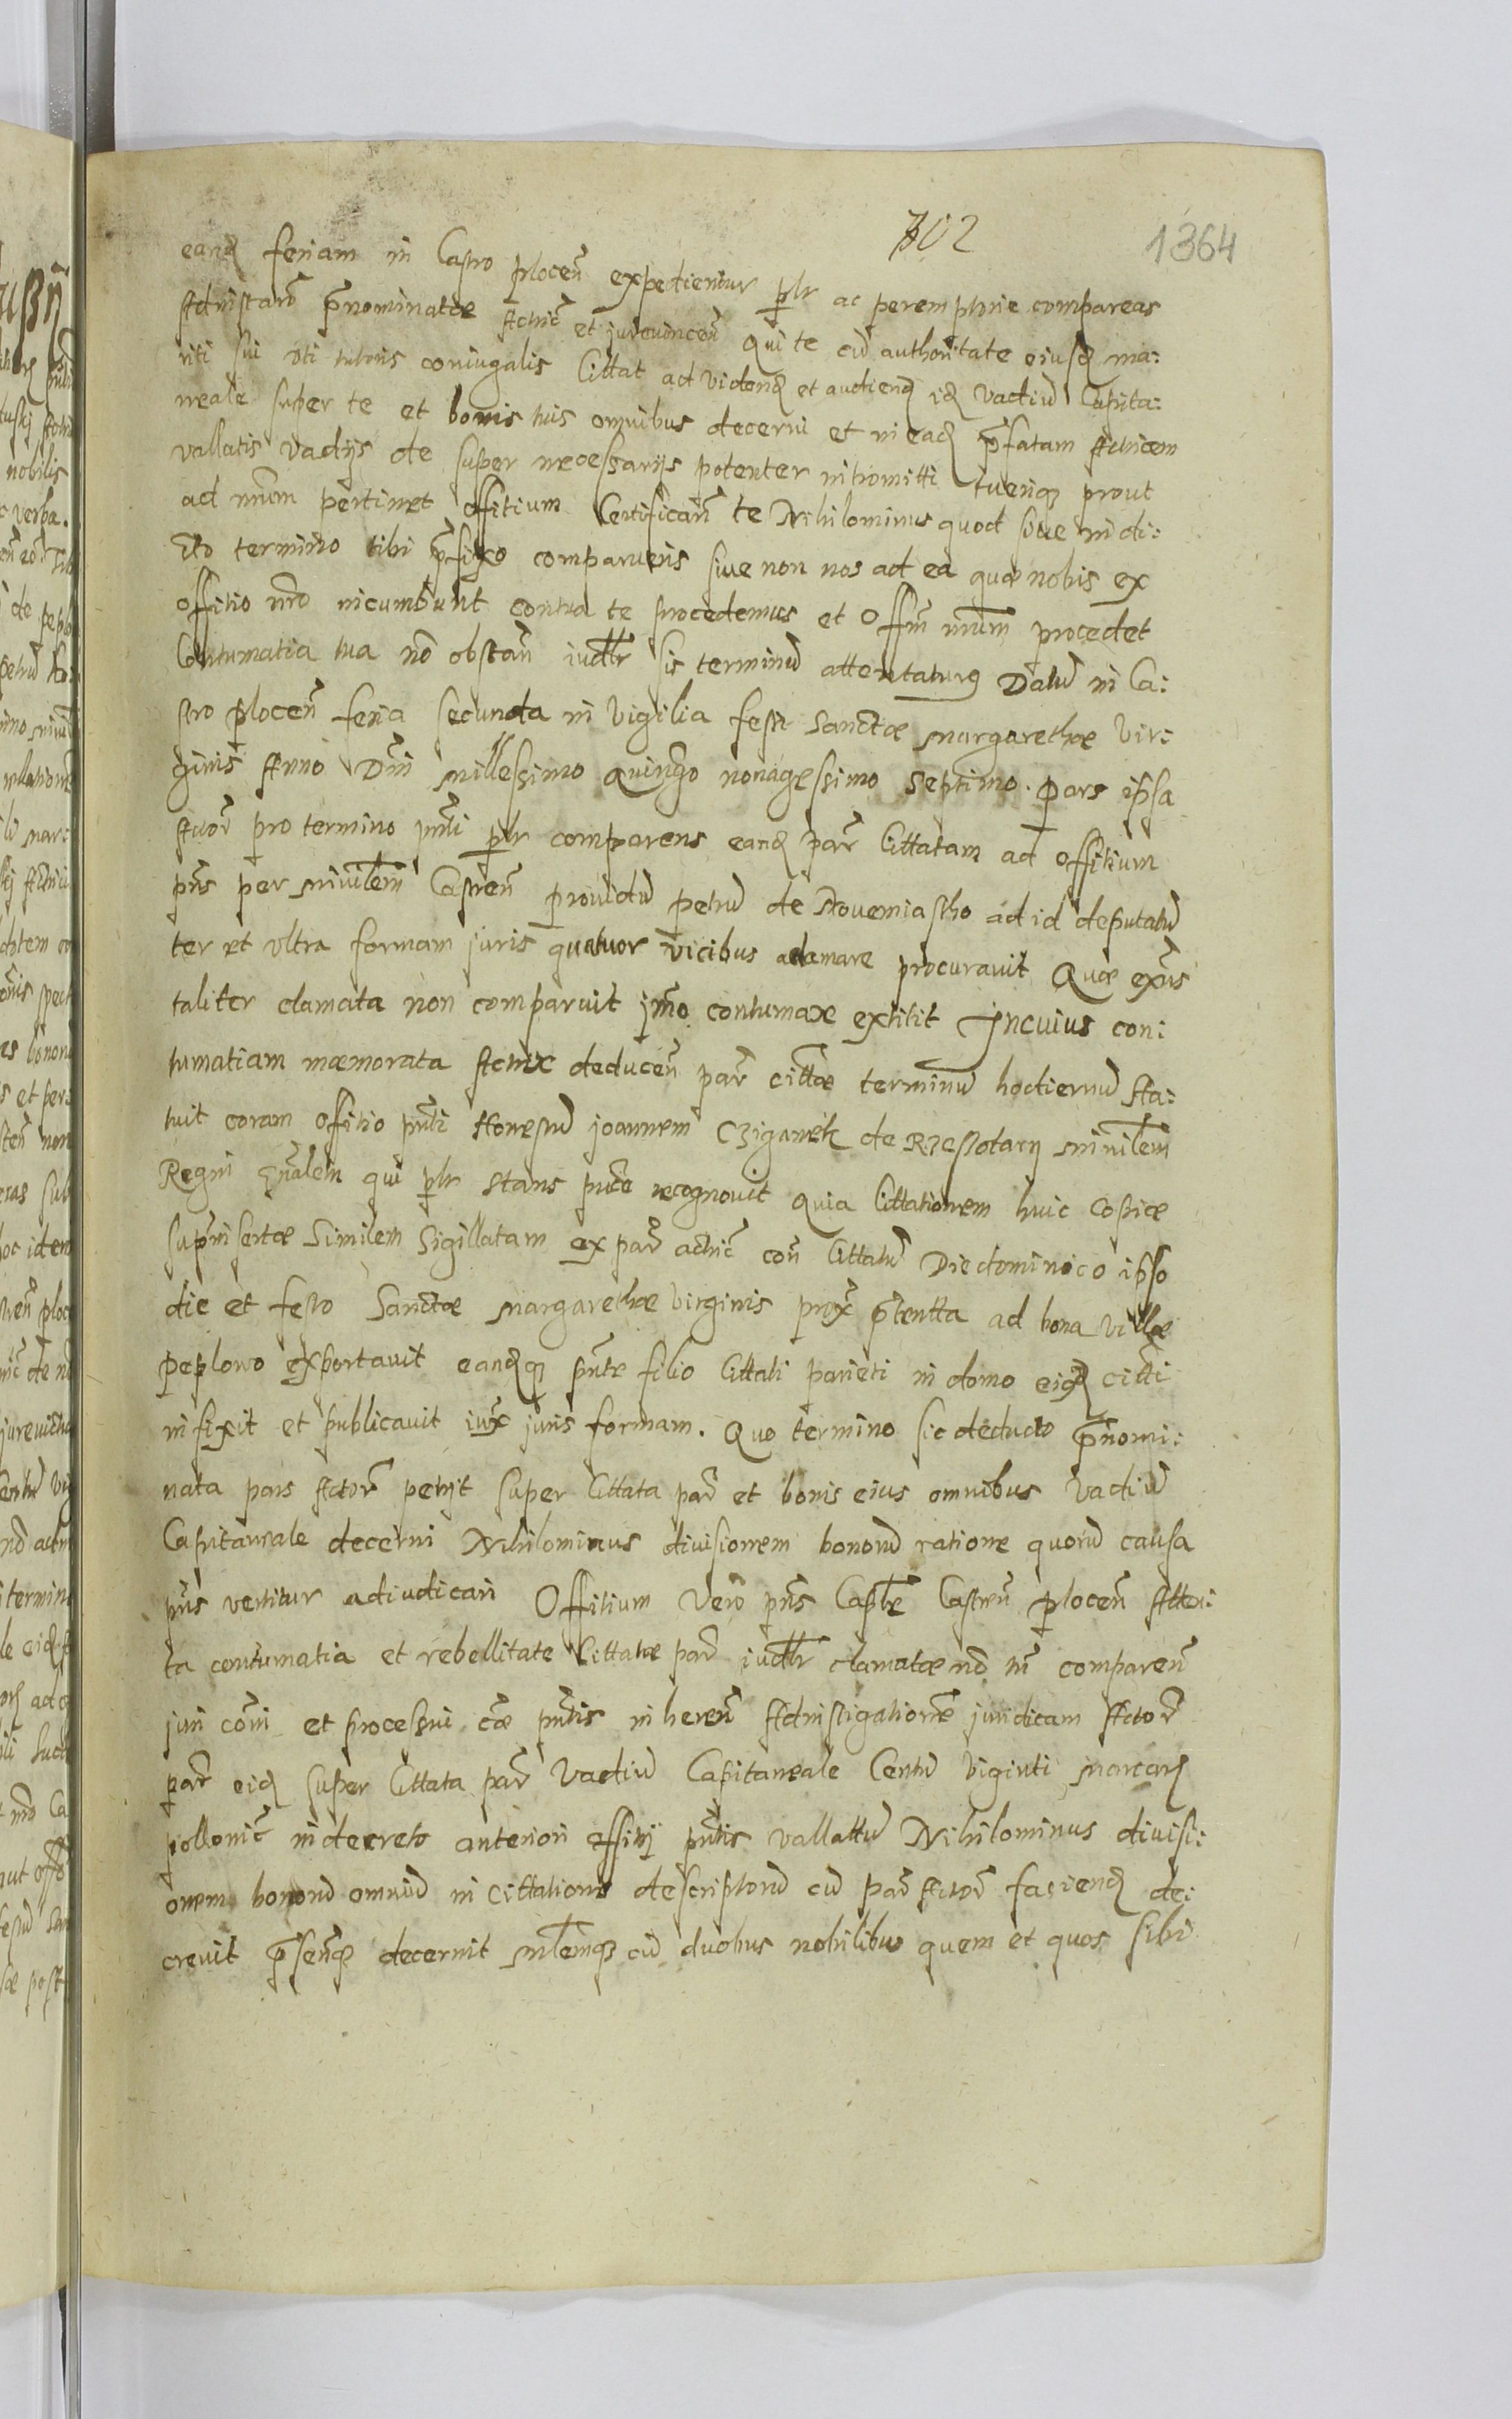 702
1364
eand feriam in Castro plocen̄ expedientur plr ac peremptorie compareas
Ad instar̄ pr̄nominatae Actric̄ et jurevincen̄ Qui te cū authoritate eiusd̄ ma:
riti sui uti tutoris coniugalis Cittat ad videnđ et audienđ iđ Vadiū Capita:
neale super te et bonis tuis omnibus decerni et in eađ pr̄fatam Actricem
vallatis vadijs de super necessarijs potenter intromitti tueriq₃ prout
ad nr̄um pertinet Offitium Certifican̄ te Nihilominus quod siue in di:
cto termino tibi pr̄fixo comparueris siue non nos ad ea quae nobis ex
offitio nr̄o incumbunt contra te procedemus et Offm̄ nr̄um procedet
Contumatia tua nō obstan̄ iudlr̄ sis terminū attentaturꝰ Datū in Ca:
stro plocen̄ feria secunda in Vigilia festi Sanctae Margarethae Vir:
ginis Anno Dn̄i Millessimo Quingō nonagessimo Septimo. Pars ipsa
Actor̄ pro termino pn̄ti plr comparens eand̄ par̄ Cittatam ad Offitium
pn̄s per Minilem̄ Castren̄ prouidū Petrū de Nouemiastho ad id deputatū
ter et ultra formam juris quatuor vicibus aclamare procurauit Quae ex̄ns
taliter clamata non comparuit im̄o contumax extitit In cuius con:
tumatiam maemorata Actrix deducen̄ par̄ cittae terminū hodiernū sta:
tuit coram Offitio pn̄ti Honestū joannem Cziganek de Rzessotary Minilem̄
Regni Gn̄alem qui plr stans pub̄ce recognouit Quia Cittationem huic Copiae
supr̄insertae Similem Sigillatam ex par̄ actric̄ con̄ Cittatū Die dominico ipso
die et festo Sanctae Margarethae Virginis prox̄ pr̄teritta ad bona villae
Peplowo exportauit eandq₃ pn̄te filio Cittati parieti in domo eiusđ citti
infixit et publicauit iux̄ juris formam. Quo termino sic deducto pr̄nomi:
nata pars Actor̄ petijt super Cittata par̄ et bonis eius omnibus Vadiū
Capitaneale decerni Nihilominus diuisionem bonorū ratione quorū causa
pn̄s vertitur adiudicari Offitium Vero pn̄s Caple Castren̄ plocen̄ Atten:
ta contumatia et rebellitate Cittatae par̄ iudlr̄ clamatae nō tn̄ comparen̄
juri com̄i et processui cāe pn̄tis inheren̄ Ad instigationē juridicam Actor̄
par̄ eiđ super Cittata par̄ Vadiū Capitaneale Centū Viginti Marcarū
pollonic̄ in decreto anteriori offitij pn̄tis vallattū Nihilominus diuisi:
onem bonorū omniū in Cittatione descriptorū cū par̄ Actor̄ faciend̄ de:
creuit pr̄sen̄q₃ decernit Mlemq₃ cū duobus nobilibus quem et quos sibi